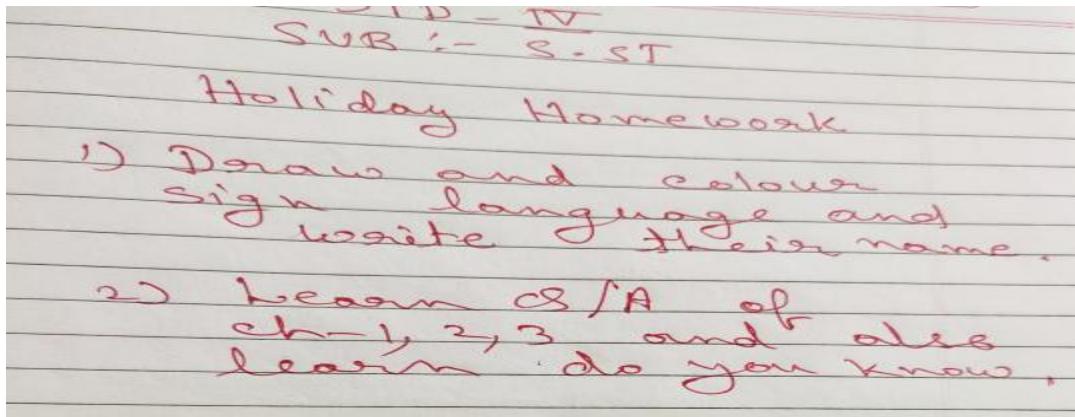 STD - IV
SUB :- S.ST
Holiday Homework
1) Draw and colour
sign language and
write their name.
2) Learn Q/A of
ch-1, 2, 3 and also
learn do you know.